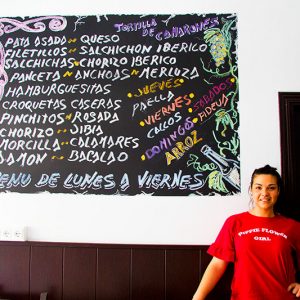 TORTILLA
DE CAMARONES
PATO ASADO ~ QUESO
FILETILLOS ~ SALCHICHON IBERICO
SALCHICHAS ~ CHORIZO IBERICO
PANCETA ~ ANCHOAS ~ MERLUZA
HAMBURGUESITAS
JUEVES
PAELLA
CROQUETAS CASERAS
VIERNES
SABADOS
FIDEUA
PINCHITOS ~ ROSADA
CALLOS
CHORIZO ~ JIBIA
DOMINGOS
ARROZ
MORCILLA ~ CALAMARES
JAMON ~ BACALAO
MENU DE LUNES A VIERNES
FLOWER
GIRL